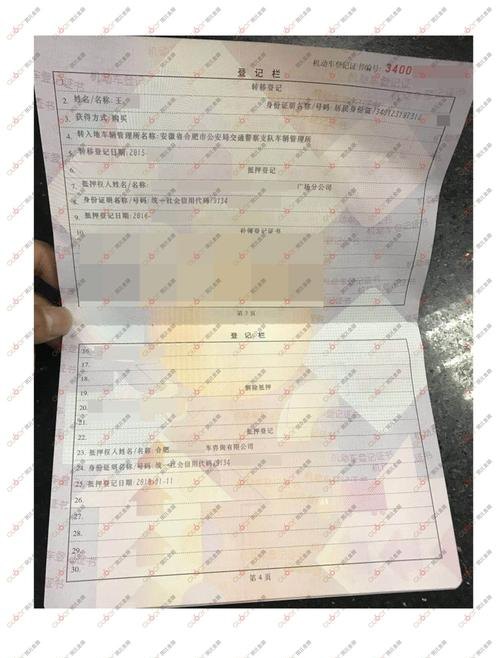 机动车登记证书编号: 3400
登记栏
转移登记
2. 姓名/名称: 王
身份证明名称/号码: 居民身份证/34012319731
3. 获得方式: 购买
4. 转入地车辆管理所名称: 安徽省合肥市公安局交通警察支队车辆管理所
5. 转移登记日期: 2015
6. 抵押登记
7. 抵押权人姓名/名称: 广场分公司
8. 身份证明名称/号码: 统一社会信用代码/9134
9. 抵押登记日期: 2016-
10. 补领登记证书
第 3 页
登记栏
16.
17.
18. 解除抵押
19.
20.
22. 抵押登记
23. 抵押权人姓名/名称: 合肥 车咨询有限公司
24. 身份证明名称/号码: 统一社会信用代码/9134
25. 抵押登记日期: 2018-01-11
26.
27.
28.
29.
30.
第 4 页